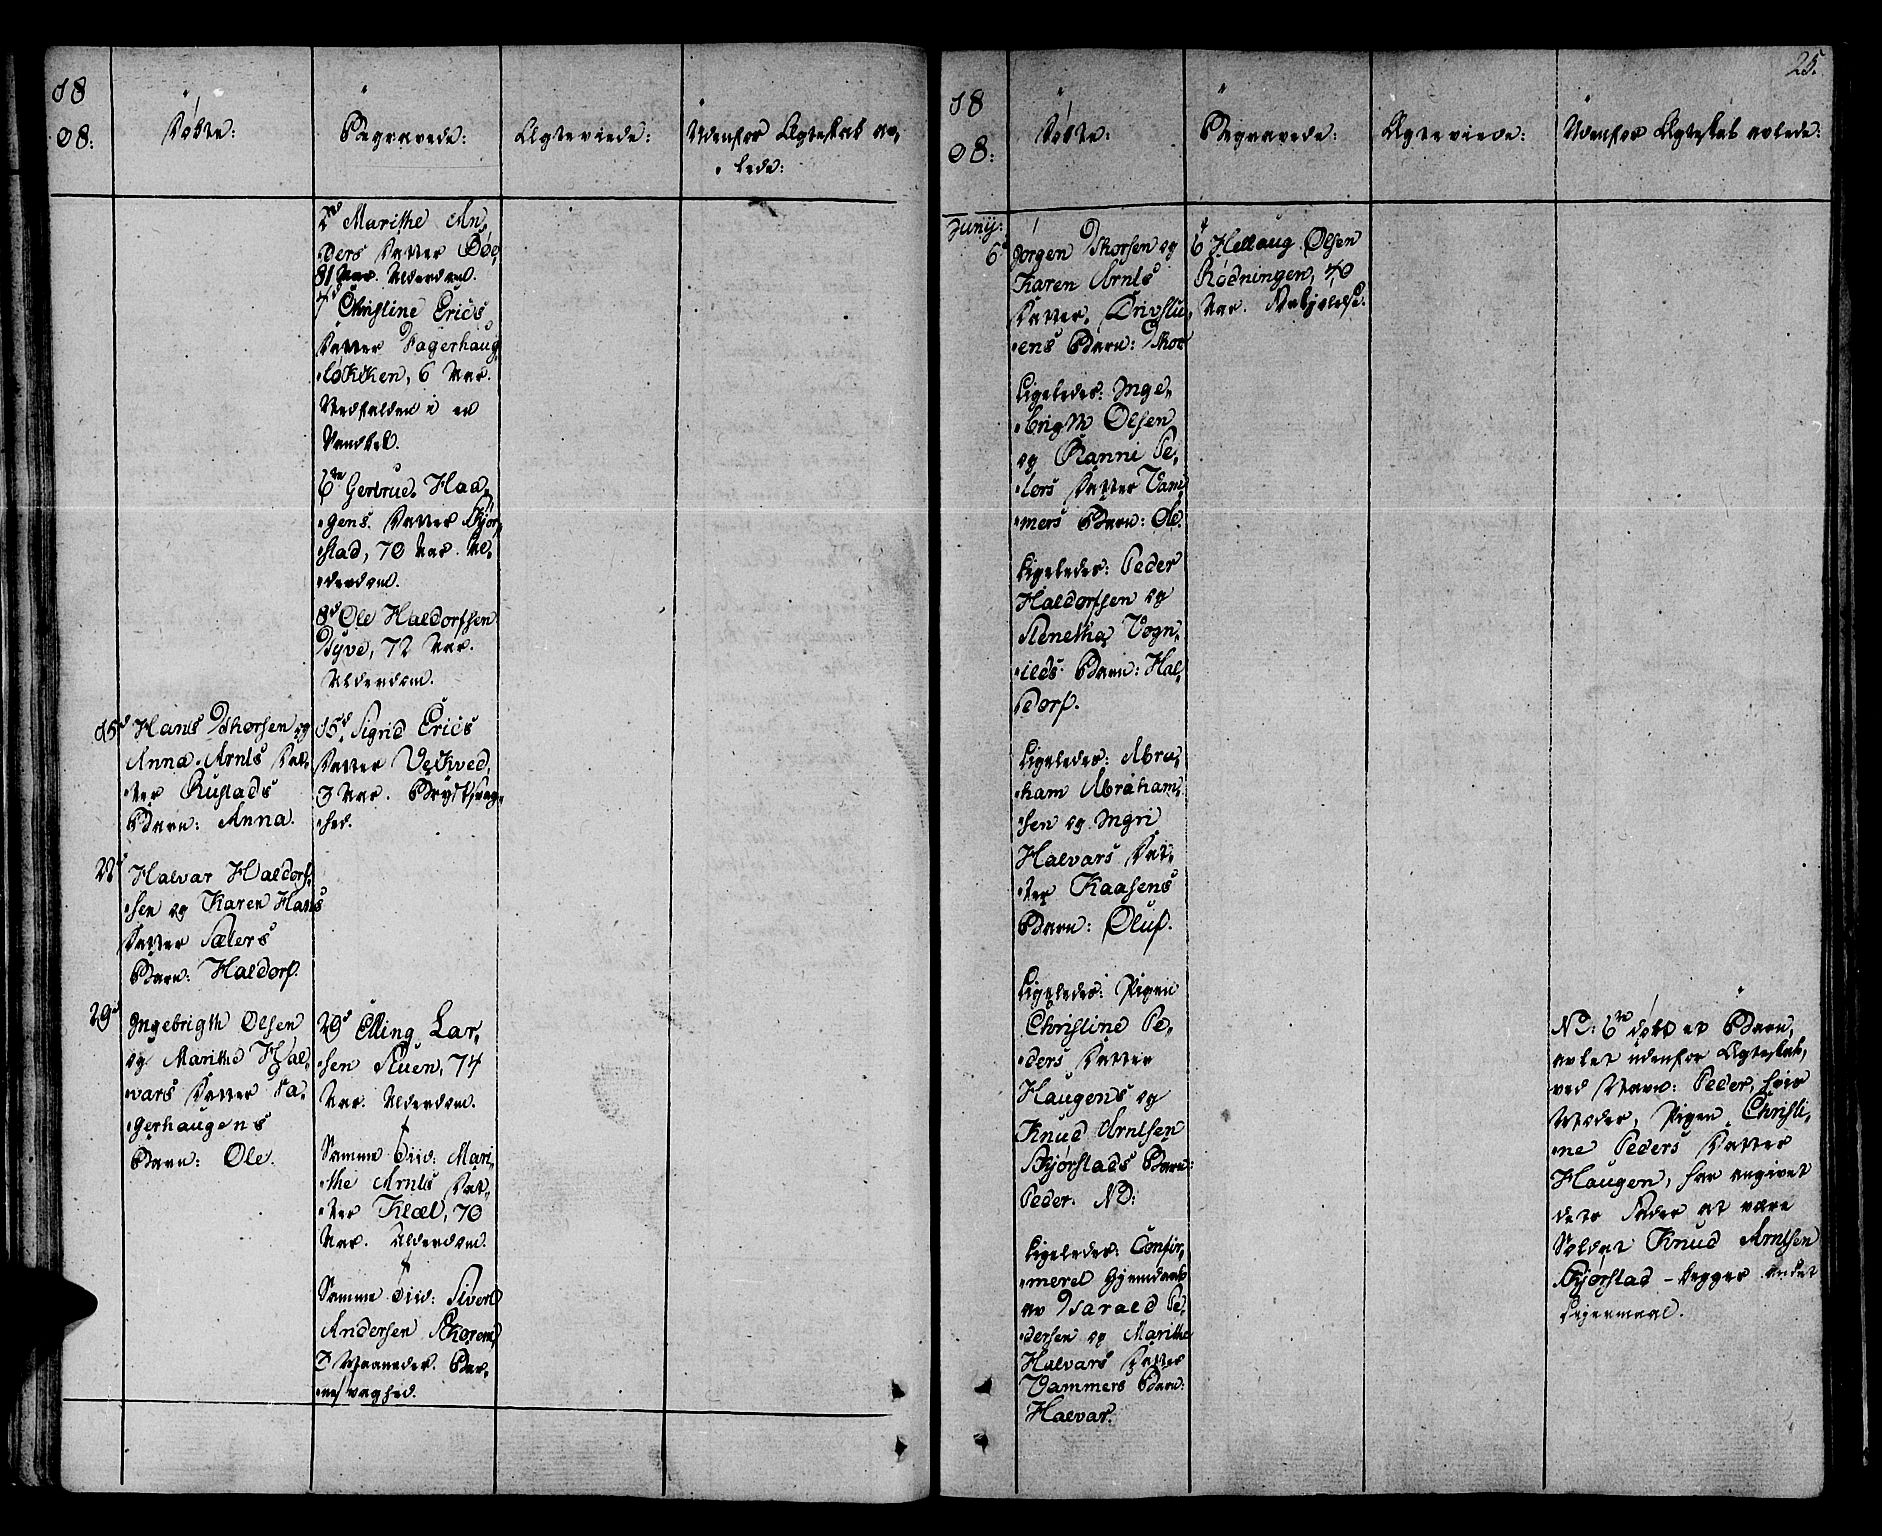 18
08:
Døbte:
Begravede:
Ægteviede:
Udenfor Ægteskab av-
lede:
2d Marithe An-
ders Datter Döe,
81 Aar. Alderdom.
4d Christine Erics
Datter Fagerhaug
løkken, 6 Aar.
Nedfalden i en
6te Gertrud Haa-
gens Datter Bjør-
stad, 70 Aar. Al-
derdom.
8d Ole Haldorssen
72 Aar.
Alderdom.
15d Hans Thorsen og
Anna Arnts Dat-
ter Rustads
Barn: Anna.
15d Sigrid Erics
Datter Veckved,
3 Aar. Brystsvag-
hed.
22d Halvar Haldors-
sen og Karen Hans
Datter Sælers
Barn: Haldors.
29d Ingebrigth Olsen
og Marithe Hal-
vars Datter Fa-
gerhaugens
Barn: Ole.
29d Elling Lar-
sen Stuen, 74
Aar. Alderdom.
Samme Tiid: Mari-
the Arnts Dat-
ter Klæl, 70
Aar. Alderdom.
Samme Tiid: Sivert
Andersen Skorem,
3 Maaneder. Bar-
nesvaghed.
25.
18
08:
Døbte:
Begravede:
Ægteviede:
Udenfor Ægteskab avlede:
Junij:
6d Jørgen Thorsen og
Karen Arnts
Datter, Drivstu-
ens Barn: Thor
Ligeledes: Inge-
brigth Olsen
og Ranni Pe-
ters Datter Vam-
mers Barn: Ole.
Ligeledes: Peder
Haldorssen og
Stenetha Vogn-
ilds Barn: Hal-
dors.
Ligeledes: Abra-
ham Abraham-
sen og Ingri
Halvars Dat-
ter Kaasens
Barn: Oluf.
Ligeledes: Pigen
Christine Pe-
ders Datter
Haugens og
Knud Arntsen
Bjørstads Barn:
Peder. NB:
Ligeledes: Confir-
meret Hjemdaab
av Harald Pe-
dersen og Marithe
Halvars Datter
Vammers Barn:
Halvar.
6d Hellaug Olsen
Rødningen, 40
Aar.
NB: 6te døbt et Barn,
avlet udenfor Ægteskab,
ved Navn: Peder, hvis
Moder, Pigen Christi-
ne Peders Datter
Haugen, har angivet
dets Fader at være
Soldat Knud Arntsen
Bjørstad - begges andet
Leiermaal.